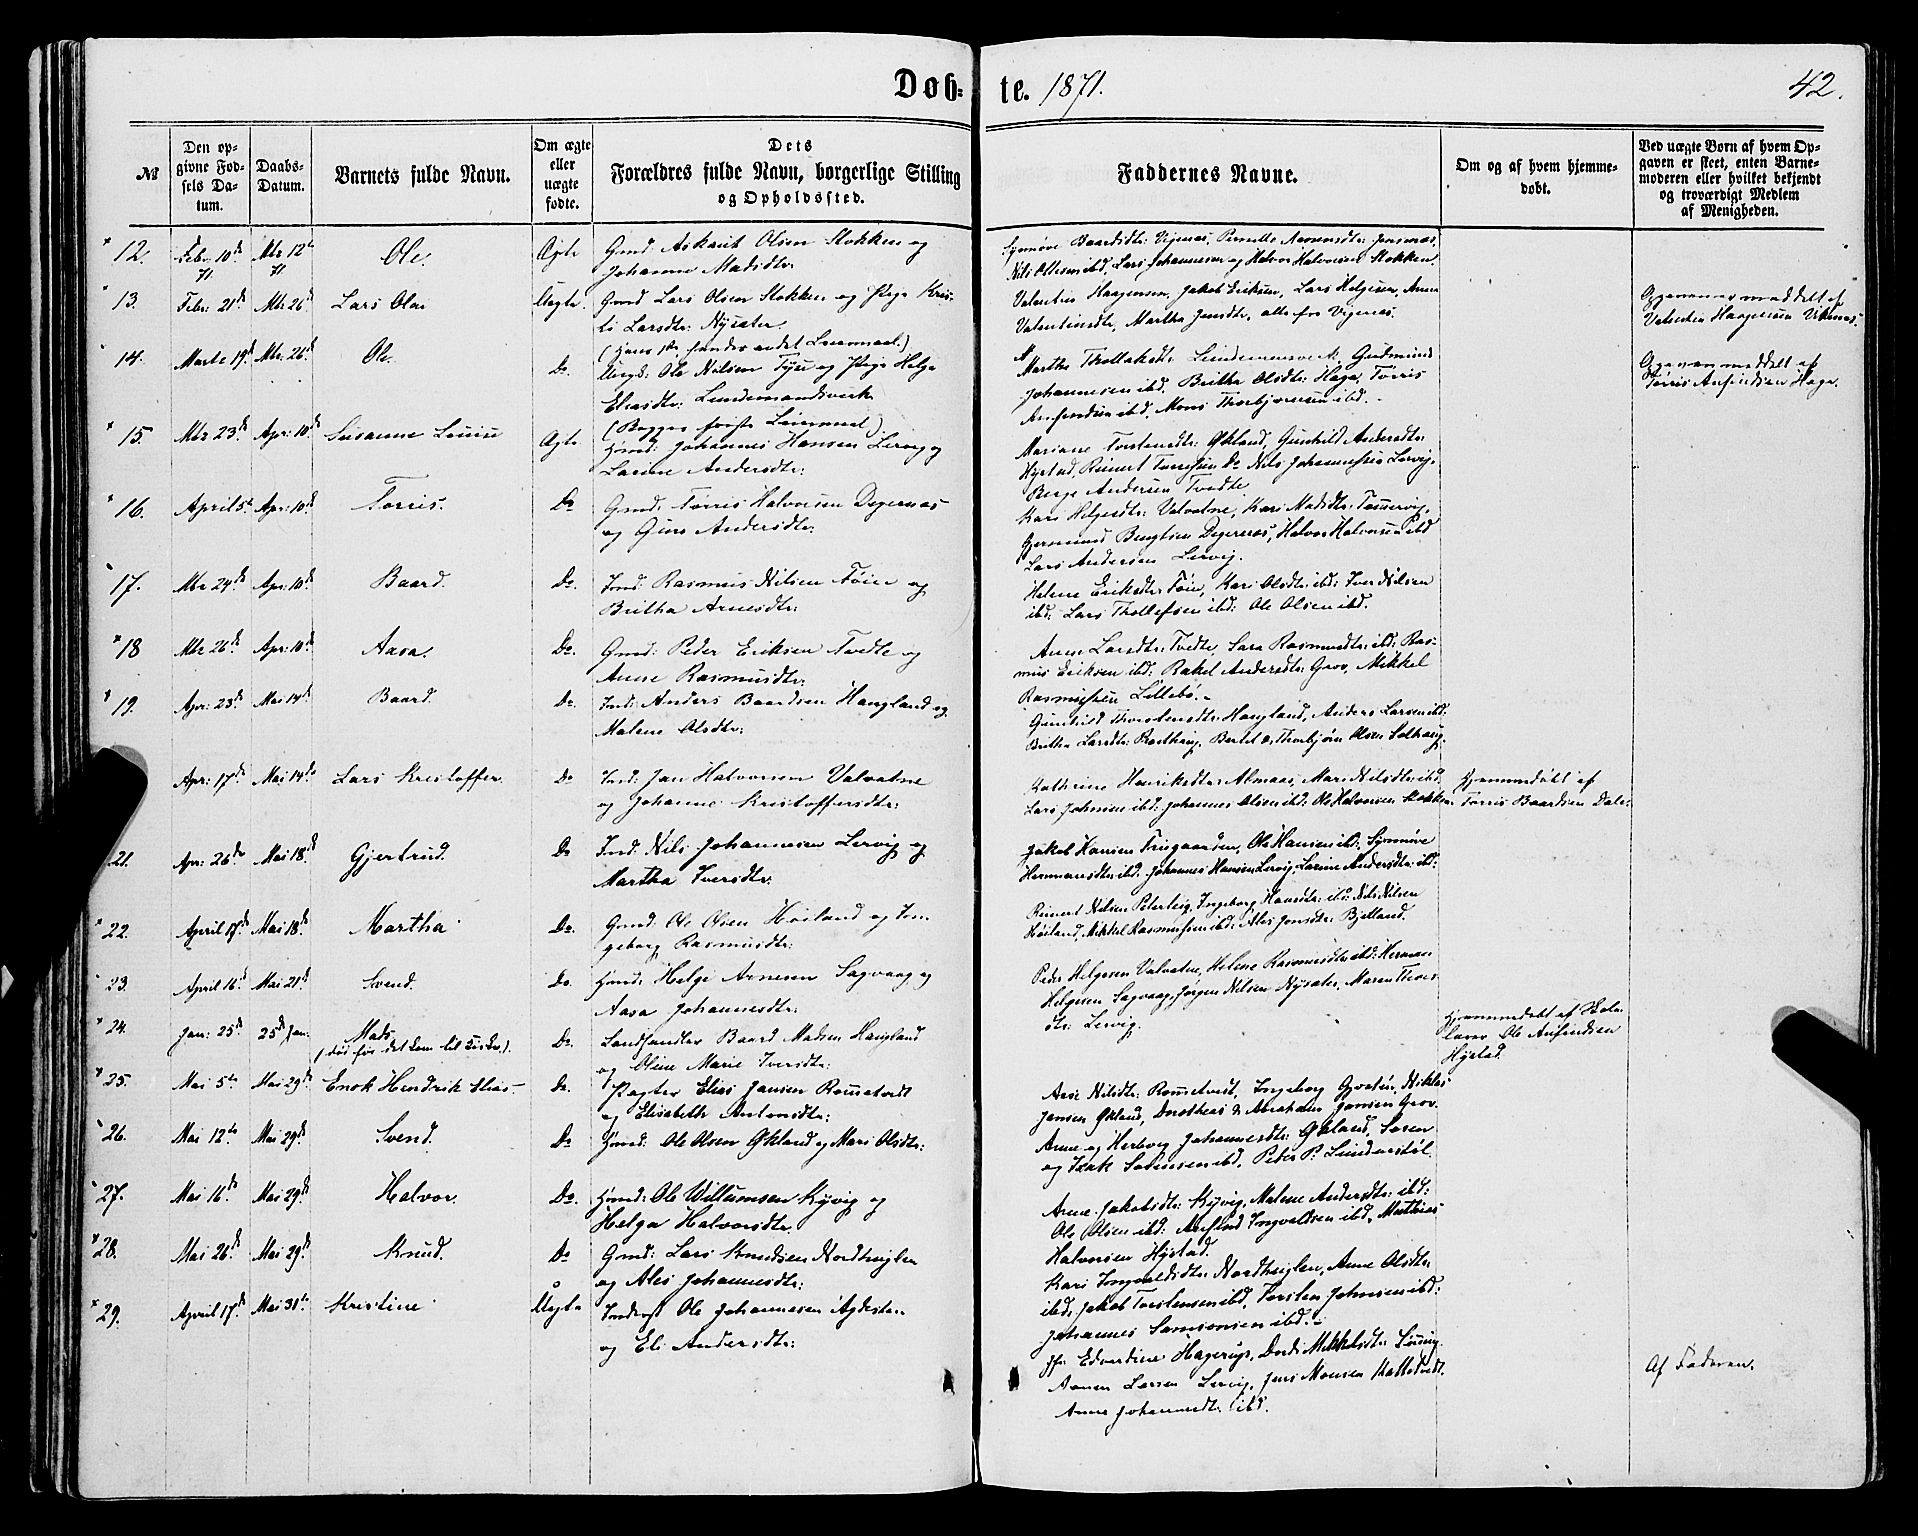 Døb-
te. 1871.
42.
№
Den op-
givne Fød-
sels Da-
tum.
Daabs-
Datum.
Barnets fulde Navn.
Om ægte
eller
uægte
fødte.
Dets
Forældres fulde Navn, borgerlige Stilling
og Opholdssted.
Faddernes Navne.
Om og af hvem hjemme-
døbt.
Ved uægte Børn af hvem Op-
gaven er skeet, enten Barne-
moderen eller hvilket bekjendt
og troværdigt Medlem
af Menigheden.
12. Febr 10de 71 Mts 12te 71 Ole. Ægte Gmd: Askaut Olsen Stokken og
Johanne Madsdtr:
Synnøve Baardsdtr: Vigenes, Pernille Jensnæs,
Nils Ottesen ibd, Lars Johannesen og Halvor Halvorsen Stokken.
13. Febr: 21de Mts 26de Lars Olai Uægte. Gmd Lars Olsen Stokken og Pige Kris-
ti Larsdtr: Nysæter.
(Hans 1ste hendes andet Leiermaal.)
Valentin Haagensen, Jakob Eriksen, Lars Helgesen, Anna
Valentinsdtr, Martha Jensdtr, alle fra Vigenes.
Opgaven er meddelt af
Valentin Haagensen Vikenes.
14. Marts 19de Mts: 26de Ole. Do. Ungk: Ole Nilsen Tyse og Pige Helga
Eliasdtr: Lundemandsverk
(Begges første Leiermaal)
Martha Thollaksdtr Lundemannsverk, Gudmund
Johannesen ibd. Britha Olsdtr: Haga, Tørris
Anfindsen ibd, Mons Thorbjørnsen ibd.
Opgaven meddelt af
Tørris Anfindsen Haga.
15. Mts 23de Apr: 10de Susanne Louise Ægte Hmd: Johannes Hansen Lervig og
Larine Andersdtr:
Marianne Torstensdtr: Økland, Gunhild Andersdtr:
Hystad, Reinert Do Nils Johannessen Lervig,
Berge Andersen Tvedte
16. April 5te Apr: 10de Torris. Do Gmd: Torris Halvorsen Degernæs
og Guro Andersdtr:
Kari Helgesdtr: Valvatne, Kari Madsdtr:
Gjermund Bengtsen Degernes, Halvor Halvorsen ibd
Lars Andersen Lervig.
17. Mts 24de Apr: 10de Baard. Do. Ind: Rasmus Nilsen Føie og
Britha Arnesdtr:
Helene Eriksdtr Føie, Kari Olsdtr: ibd: Iver Nilsen
ibd: Lars Thollefsen ibd: Ole Olsen ibd.
18 Mts 26de Apr: 10de Aasa. Do. Gmd: Peder Eriksen Tvedte og
Anne Rasmusdtr:
Anne Larsdtr: Tvedte, Sara Rasmusdtr: ibd: Ras-
mus Eriksen ibd: Rakel Andersdtr: Grov, Mikkel
Rasmussen Lillebø.
19. Apr: 23de Mai 14de Baard. Do. Ind: Anders Baardsen Haugland og
Malene Olsdtr:
Gunhild Thorstensdtr: Haugland, Anders Larsen ibd:
Britha Larsdtr: Bertel & Thorbjørn Olsen
Apr: 17de Mai 14de Lars Kristoffer. Do Ind: Jan Halvorsen Valvatne
og Johanne Kristoffersdtr:
Kathrine Henriksdtr: Almaas, Mari Nilsdtr: ibd:
Lars Johnsen ibd: Johannes Olsen ibd: Ole Halvorsen Stokken.
Hjemmedøbt af
Torris Baardsen Dale.
21. Apr: 26de Mai 18de Gjertrud. Do Ind: Nils Johannesen Lervig og
Martha Iversdtr:
Jakob Hansen Trugaarden, Ole Hansen ibd. Synnøve
Hermansdtr: ibd. Johannes Hansen Lervig, Larine Andersdtr: ibd:
22. April 17de Mai 18de Martha Do. Gmd: Ole Olsen Høiland og In-
geborg Rasmusdtr:
Reinert Nilsen Peterteig, Ingeborg Hansdtr: ibd: Nils Nilsen
Høiland, Mikkel Rasmussen ibd: Ales Jonsdtr: Bjelland.
23. April 16de Mai 21de Svend. Do. Hmd: Helge Arnesen Sagvaag og
Aasa Johannesdtr:
Peder Helgesen Valvatne, Helene Rasmusdtr: ibd: Herman
Helgesen Sagvaag, Jørgen Nilsen Nysæter, Maren
dtr: Lervig.
24. Jan: 25de 25de Jan: Mads.
(død før det kom til Kirke). Do. Landhandler Baard Madsen Haugland
og Oline Marie Iversdtr:
Hjemmedøbt af Skole-
lærer Ole Anfindsen
Hystad.
25. Mai 5te Mai 29de Enok Hendrik Elias. Do. Pagter Elias Jansen Rommetvedt
og Elisabeth Antonsdtr:
Aase Nilsdtr: Rommetvedt, Ingeborg Niklas
Jansen Økland, Dorothea & Abraham Jansen Grov.
26. Mai 12te Mai 29de Svend. Do Hmd: Ole Olsen Økland og Mari Olsdtr:
Anne og Herborg Johannesdtr: Økland, Søren
og Isak Sørensen ibd, Peder P: Lunderstøl.
27. Mai 16de Mai 29de Halvor. Do. Hmd: Ole Willumsen Kyvig og
Helga Halvorsdtr.
Anne Jakobsdtr: Kyvig, Malene Andersdtr: ibd:
Ole Olsen ibd: Anfind Ingvaldsen ibd, Mathias
Halvorsen Hystad.
28. Mai 26de Mai 29de Knud. Do Gmd: Lars Knudsen Nordhuglen
og Ales Johannesdtr:
Kari Ingvaldsdtr: Nordhuglen, Anne Olsdtr:
ibd: Jakob Torstensen ibd, Torsten Johnsen ibd:
Johannes Samsonsen ibd.
29. April 17de Mai 31te Kristine Uægte Inderst Ole Johannesen Agdesten
og Eli Andersdtr:
Edvardine Hagerup, Dordi Mikkelsdtr:
Larsen Lervig, Jens Monsen Kattetvedt,
Anna Johannesdtr: ibd.
Af Faderen.